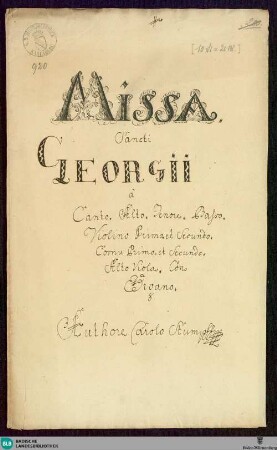 920
Missa.
Sancti
GEORGii
à
Canto. Alto. Tenore. Basso.
Violino Primo, et Secundo.
Cornu Primo. et Secundo.
Alto Viola. Con
Organo.
Authore Carolo
BLB BADISCHE
LANDESBIBLIOTHEK